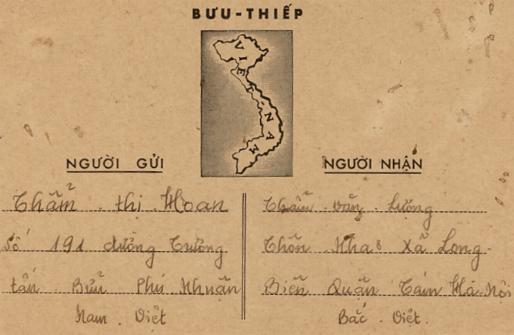 BƯU-THIẾP
VIỆT-NAM
NGƯỜI GỬI
Thẩm thị Hoan
số 191 đường Trường
tấn Bửu Phú Nhuận
Nam Việt
NGƯỜI NHẬN
văn
Thôn Nha Xã Long
Biên Quận Hà Nội
Bắc Việt